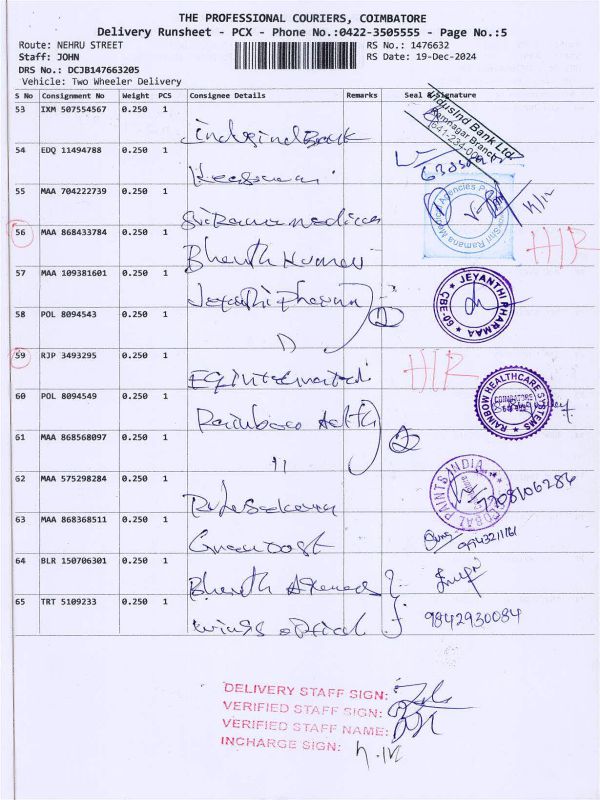 THE PROFESSIONAL COURIERS, COIMBATORE
Delivery Runsheet - PCX - Phone No.:0422-3505555 - Page No.:5
Route: NEHRU STREET
RS No.: 1476632
Staff: JOHN
RS Date: 19-Dec-2024
DRS No.: DCJB147663205
Vehicle: Two Wheeler Delivery
S No Consignment No Weight PCS Consignee Details Remarks Seal & Signature
53 IXM 507554567 0.250 1 IndusindBank
IndusInd Bank Ltd
Ramnagar Branch
54 EDQ 11494788 0.250 1
55 MAA 704222739 0.250 1 Sri Ramana medicas
Sri Ramana Medical Agencies
56 MAA 868433784 0.250 1 Bharath Kumar
H/R
57 MAA 109381601 0.250 1 Jeyanthi Pharma
2
JEYANTHI PHARMAA
CBE-60
58 POL 8094543 0.250 1 "
59 RJP 3493295 0.250 1 EG International
H/R
60 POL 8094549 0.250 1 Rainbow Health
2
RAINBOW HEALTHCARE SYSTEMS
COIMBATORE
61 MAA 868568097 0.250 1 "
62 MAA 575298284 0.250 1
GLOBAL PAINTS INDIA
7708106286
63 MAA 868368511 0.250 1
64 BLR 150706301 0.250 1 Bharath
65 TRT 5109233 0.250 1 Wings optical
9842930084
DELIVERY STAFF SIGN:
VERIFIED STAFF SIGN:
VERIFIED STAFF NAME:
INCHARGE SIGN: